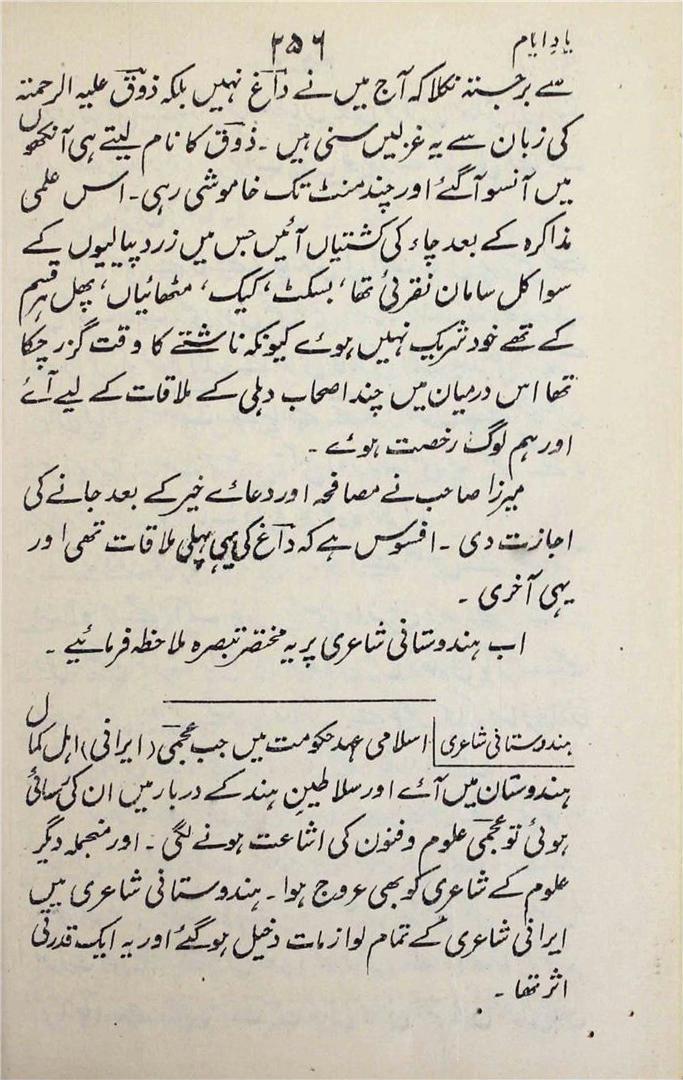 یادِ ایام
۲۵۶
سے برجستہ نکلا کہ آج میں نے داغؔ نہیں بلکہ ذوقؔ علیہ الرحمتہ
کی زبان سے یہ غزلیں سنی ہیں ۔ ذوقؔ کا نام لیتے ہی آنکھوں
میں آنسو آگئے اور چند منٹ تک خاموشی رہی۔ اس علمی
مذاکرہ کے بعد چاء کی کشتیاں آئیں جس میں زرد پیالیوں کے
سوا کل سامان نقرئی تھا ، بسکٹ ، کیک ، مٹھائیاں ، پھل ہر قسم
کے تھے خود شریک نہیں ہوے کیونکہ ناشتے کا وقت گزر چکا
تھا اس درمیان میں چند اصحاب دہلی کے ملاقات کے لیے آۓ
اور ہم لوگ رخصت ہوۓ ۔
میرزا صاحب نے مصافحہ اور دعاۓ خیر کے بعد جانے کی
اجازت دی ۔ افسوس ہے کہ داغؔ کی یہی پہلی ملاقات تھی اور
یہی آخری ۔
اب ہندوستانی شاعری پر یہ مختصر تبصرہ ملاحظہ فرمائیے ۔
ہندوستانی شاعری اسلامی عہد حکومت میں جب عجمی (ایرانی) اہل کمال
ہندوستان میں آۓ اور سلاطینِ ہند کے دربار میں ان کی رسائی
ہوئی تو عجمی علوم و فنون کی اشاعت ہونے لگی ۔ اور منجملہ دیگر
علوم کے شاعری کو بھی عروج ہوا ۔ ہندوستانی شاعری میں
ایرانی شاعری کے تمام لوازمات دخیل ہوگئے اور یہ ایک قدرتی
اثر تھا ۔